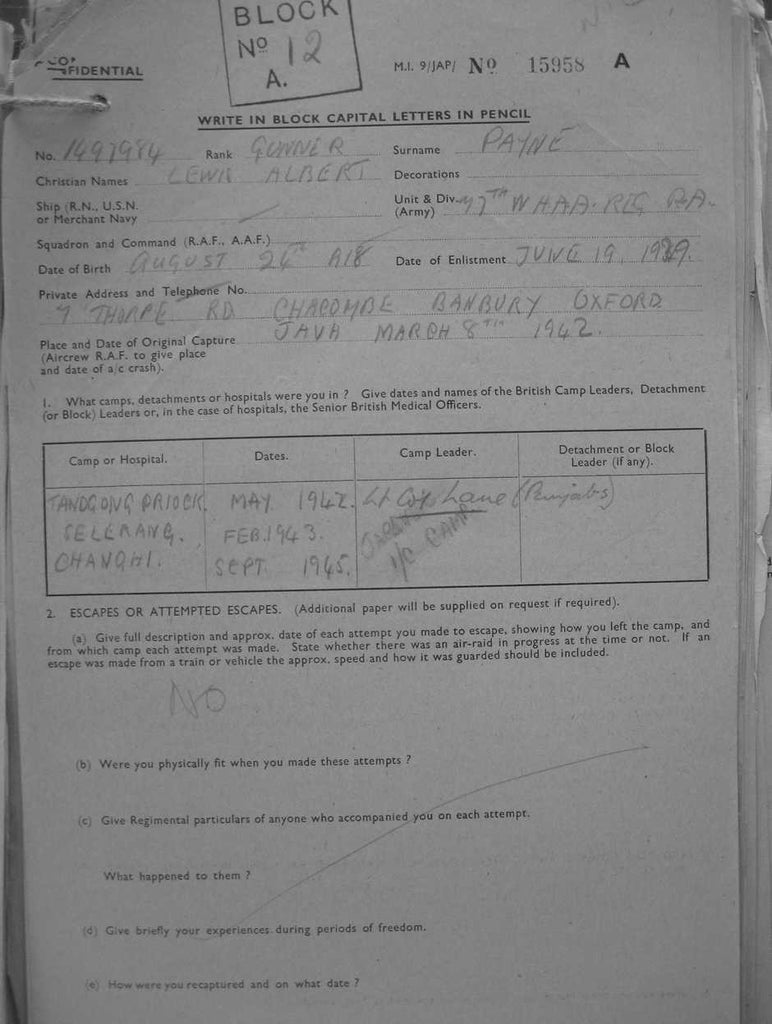 BLOCK
No 12
A.
CONFIDENTIAL
M.I. 9/JAP/ No 15958 A
WRITE IN BLOCK CAPITAL LETTERS IN PENCIL
No. 1497984 Rank GUNNER Surname PAYNE
Christian Names LEWIS ALBERT Decorations
Ship (R.N., U.S.N. or Merchant Navy
Unit & Div. (Army) 77TH W HAA. REG RA.
Squadron and Command (R.A.F., A.A.F.)
Date of Birth AUGUST 26th 1918 Date of Enlistment JUNE 19, 1939.
Private Address and Telephone No.
7 THORPE RD CHACOMBE BANBURY OXFORD
Place and Date of Original Capture JAVA MARCH 8TH 1942.
(Aircrew R.A.F. to give place
and date of a/c crash).
1. What camps, detachments or hospitals were you in ? Give dates and names of the British Camp Leaders, Detachment
(or Block) Leaders or, in the case of hospitals, the Senior British Medical Officers.
Camp or Hospital. Dates. Camp Leader. Detachment or Block
Leader (if any).
TANDGONG PRIOCK MAY 1942. Lt Col Lane (Punjabs)
SELERANG. FEB. 1943.
CHANGHI. SEPT 1945. I/C CAMP
2. ESCAPES OR ATTEMPTED ESCAPES. (Additional paper will be supplied on request if required).
(a) Give full description and approx. date of each attempt you made to escape, showing how you left the camp, and
from which camp each attempt was made. State whether there was an air-raid in progress at the time or not. If an
escape was made from a train or vehicle the approx. speed and how it was guarded should be included.
NO
(b) Were you physically fit when you made these attempts ?
(c) Give Regimental particulars of anyone who accompanied you on each attempt.
What happened to them ?
(d) Give briefly your experiences during periods of freedom.
(e) How were you recaptured and on what date ?